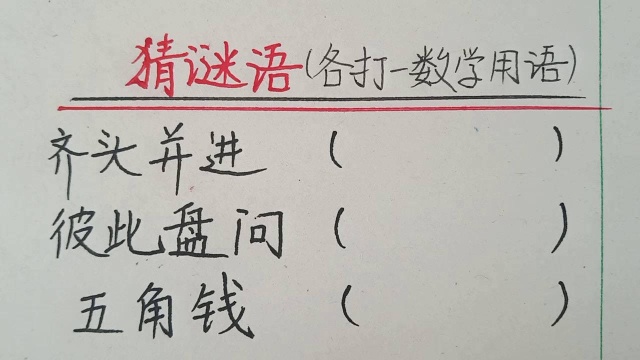 猜谜语(各打一数学用语)
齐头并进 ( )
彼此盘问 ( )
五角钱 ( )